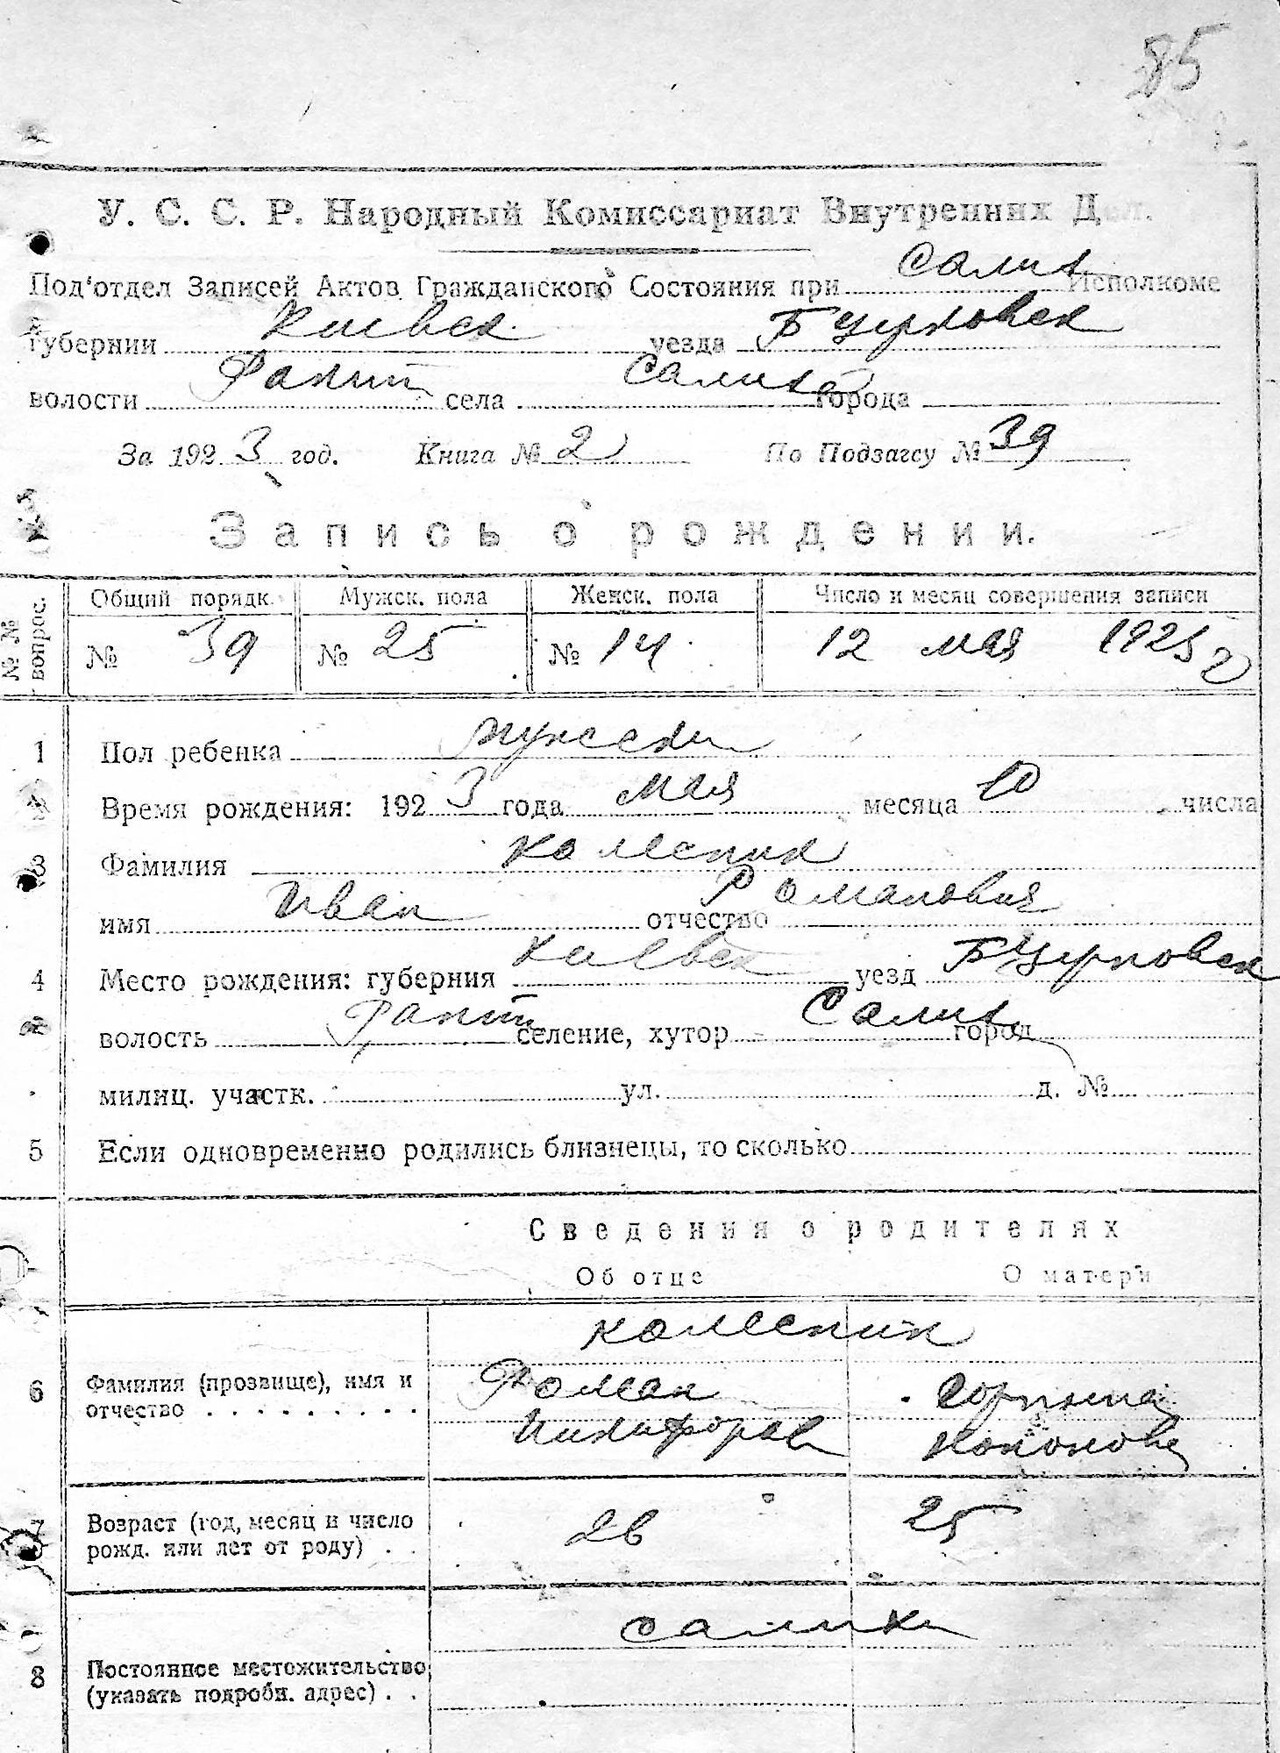 85
У. С. С. Р. Народный Комиссариат Внутренних Дел.
Под'отдел Записей Актов Гражданского Состояния при Исполкоме
губернии Киевск. уезда Бцерковск
волости села города
За 1923 год. Книга № 2 По Подзагсу № 39
Запись о рождении.
№ № вопрос. Общий порядк. Мужск. пола Женск. пола Число и месяц совершения записи
№ 39 № 25 № 14 12 мая 1923 г
1 Пол ребенка мужеский
Время рождения: 1923 года мая месяца 10 числа
3 Фамилия Колесник
имя Иван отчество Романович
4 Место рождения: губерния Киевск уезд Бцерковск
волость селение, хутор город
милиц. участк. ул. д. №
5 Если одновременно родились близнецы, то сколько
Сведения о родителях
Об отце О матери
Колесник
6 Фамилия (прозвище), имя и Роман Горпына
отчество Никифоров Кононова
7 Возраст (год, месяц и число 26 25
рожд. или лет от роду)
8 Постоянное местожительство
(указать подробн. адрес)